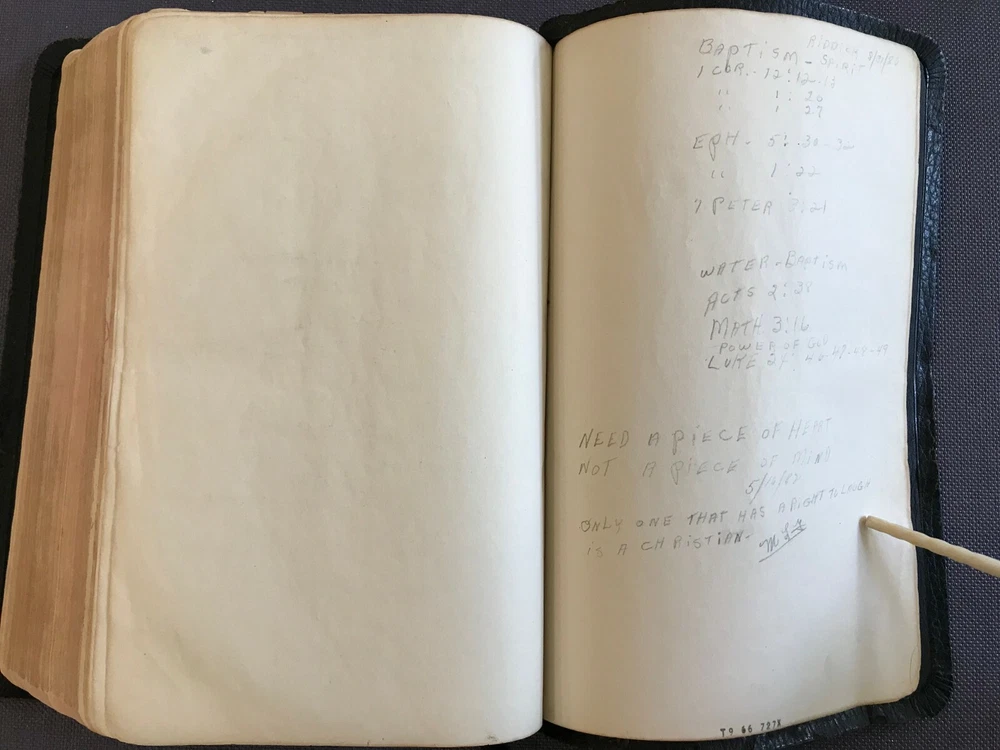 BAPTISM - SPIRIT
1 COR. - 12:12-13
" 1:
" 27
EPH - 5:30-32
" 1:22
1 PETER 3:21
WATER - BAPTISM
ACTS 2:38
MATH 3:16
POWER OF GOD
LUKE
NEED A PIECE OF HEART
NOT A PIECE OF MIND
5/16/82
ONLY ONE THAT HAS A RIGHT TO LAUGH
IS A CHRISTIAN-
T9 66 727X